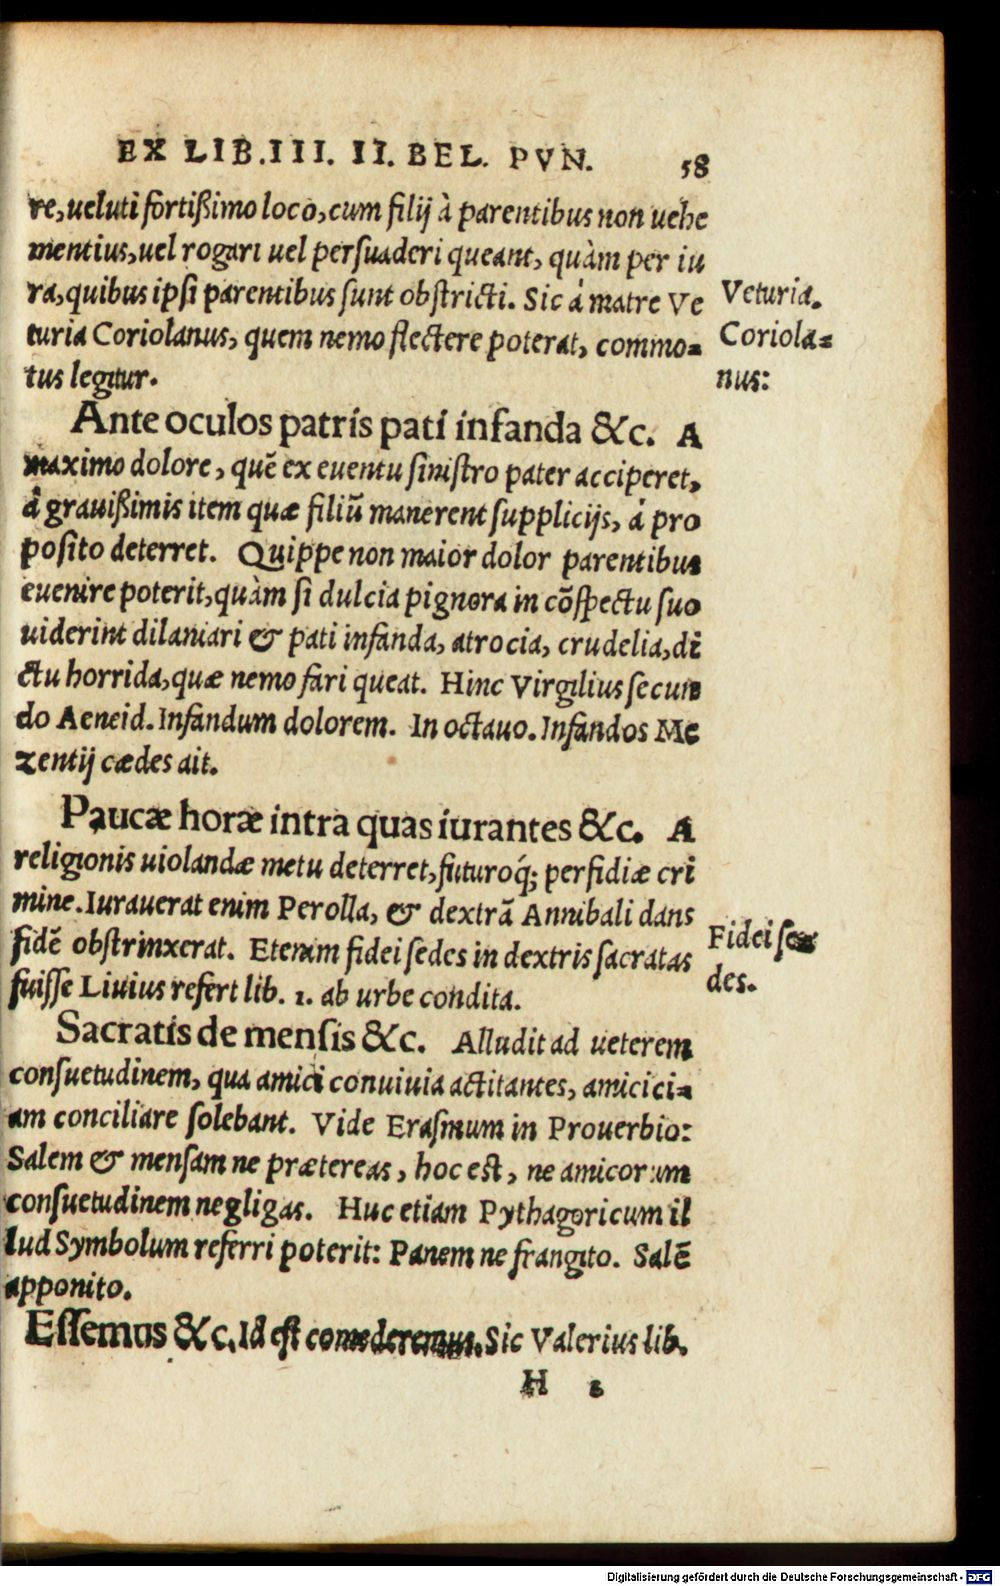 EX LIB.III. II. BEL. PVN. 58
re, ueluti fortißimo loco, cum filij à parentibus non uehe
mentius, uel rogari uel persuaderi queant, quàm per iu
ra, quibus ipsi parentibus sunt obstricti. Sic á matre Ve
turia Coriolanus, quem nemo flectere poterat, commo=
tus legitur.
Veturia.
Coriola=
nus:
Ante oculos patris pati infanda &c. A
maximo dolore, quẽ ex euentu sinistro pater acciperet,
â grauißimis item quæ filiũ manerent supplicijs, á pro
posito deterret. Quippe non maior dolor parentibus
euenire poterit, quàm si dulcia pignora in cõspectu suo
uiderint dilaniari & pati infanda, atrocia, crudelia, di
ctu horrida, quæ nemo fari queat. Hinc Virgilius secun
do Aeneid. Infandum dolorem. In octauo. Infandos Me
zentij cædes ait.
Paucæ horæ intra quas iurantes &c. A
religionis uiolandæ metu deterret, futuroq́; perfidiæ cri
mine. Iurauerat enim Perolla, & dextrã Annibali dans
fidẽ obstrinxerat. Etenim fidei sedes in dextris sacratas
fuisse Liuius refert lib. 1. ab urbe condita.
Fidei se=
des.
Sacratis de mensis &c. Alludit ad ueterem
consuetudinem, qua amici conuiuia actitantes, amicici=
am conciliare solebant. Vide Erasmum in Prouerbio:
Salem & mensam ne prætereas, hoc est, ne amicorum
consuetudinem negligas. Huc etiam Pythagoricum il
lud Symbolum referri poterit: Panem ne frangito. Salẽ
apponito.
Essemus &c. Id est comederemus. Sic Valerius lib.
H 2
Digitalisierung gefördert durch die Deutsche Forschungsgemeinschaft - DFG